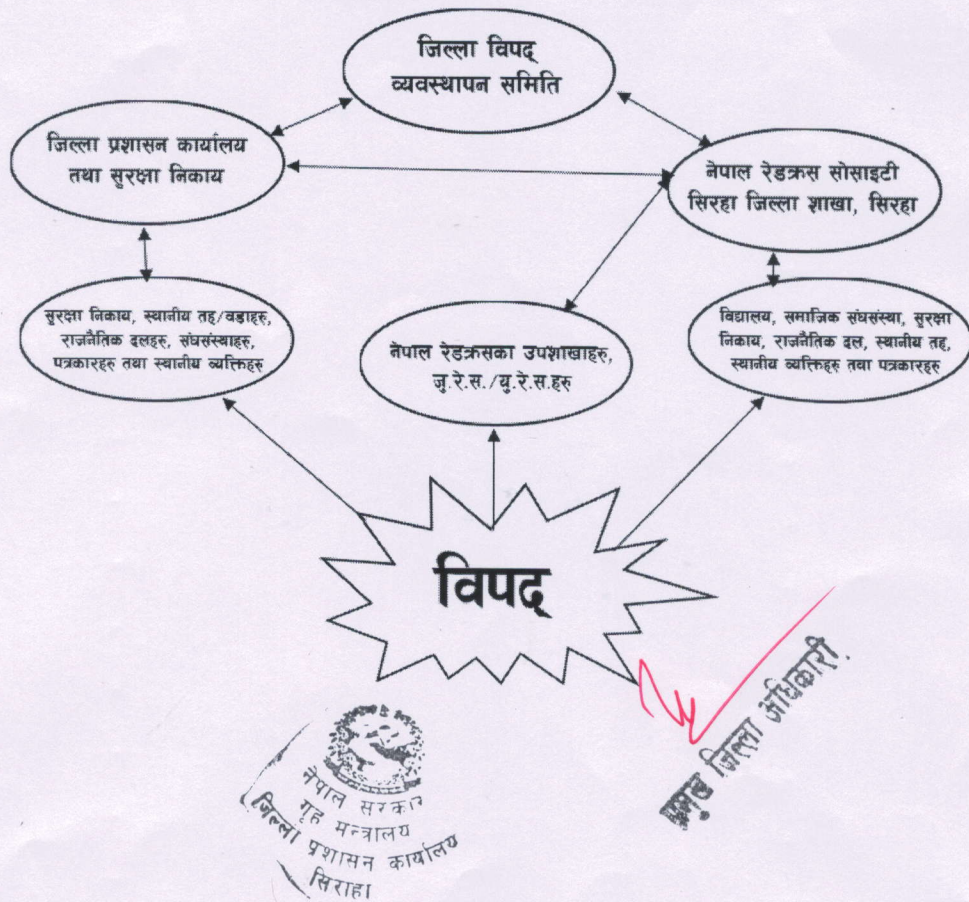 जिल्ला विपद्
व्यवस्थापन समिति
जिल्ला प्रशासन कार्यालय
तथा सुरक्षा निकाय
नेपाल रेडक्रस सोसाइटी
सिरहा जिल्ला शाखा, सिरहा
सुरक्षा निकाय, स्थानीय तह/वडाहरु,
राजनैतिक दलहरु, संघसंस्थाहरु,
पत्रकारहरु तथा स्थानीय व्यक्तिहरु
नेपाल रेडक्रसका उपशाखाहरु,
जु.रे.स./यु.रे.स.हरु
विद्यालय, समाजिक संघसंस्था, सुरक्षा
निकाय, राजनैतिक दल, स्थानीय तह,
स्थानीय व्यक्तिहरु तथा पत्रकारहरु
विपद्
नेपाल सरकार
गृह मन्त्रालय
जिल्ला प्रशासन कार्यालय
सिराहा
प्रमुख जिल्ला अधिकारी